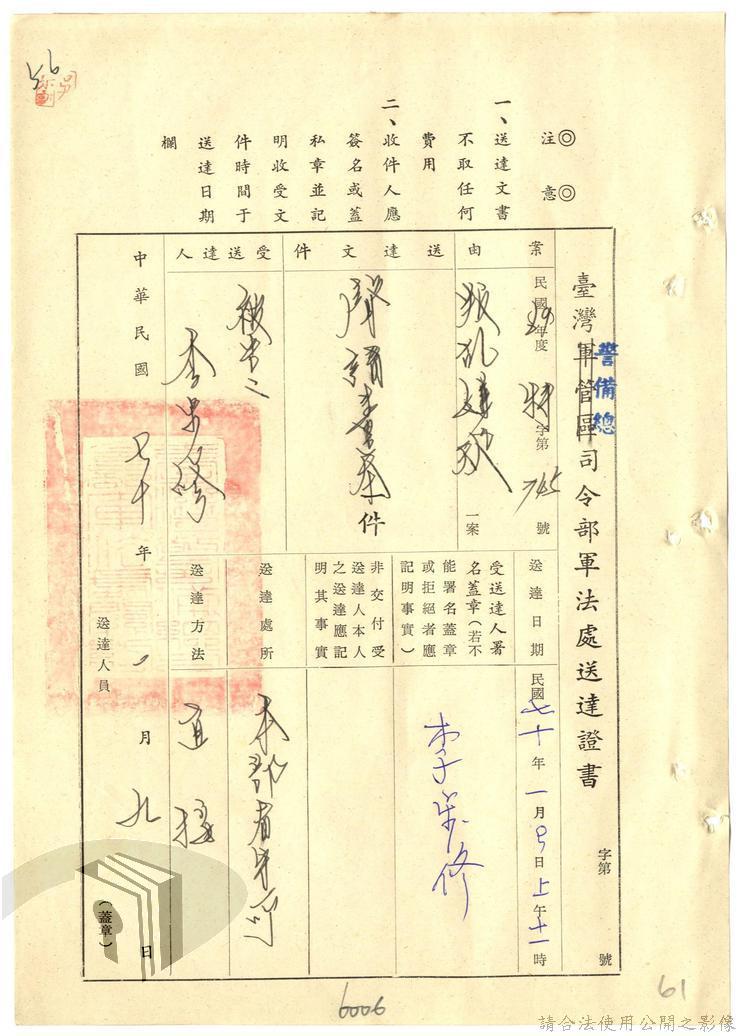 56
◎注意◎
一、送達文書
不取任何
費用
二、收件人應
簽名或蓋
私章並記
明收受文
件時間于
送達日期
欄
臺灣軍管區司令部軍法處送達證書
警備總
字第 號
案由
民國 年度 特 字第 號
叛亂嫌疑
一案
送達文件
聲請書
件
受送達人
被告
李
送達日期
民國七十年一月 日上午十一時
受送達人署
名蓋章(若不
能署名蓋章
或拒絕者應
記明事實)
李 修
非交付受
送達人本人
之送達應記
明其事實
送達處所
本部看守所
送達方法
直接
中華民國七十年 月九日
送達人員
(蓋章)
6006
61
請合法使用公開之影像